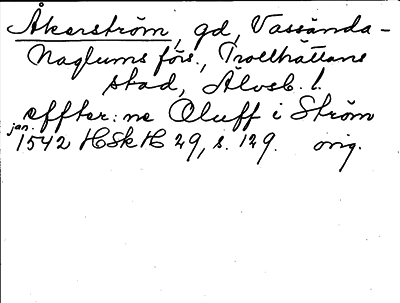 Åkerström, gd, Vassända-
Naglums förs., Trollhättans
stad, Älvsb. l.
effter: ne Oluff i Ström
jan.
1542 HSkH 29, s. 129. orig.